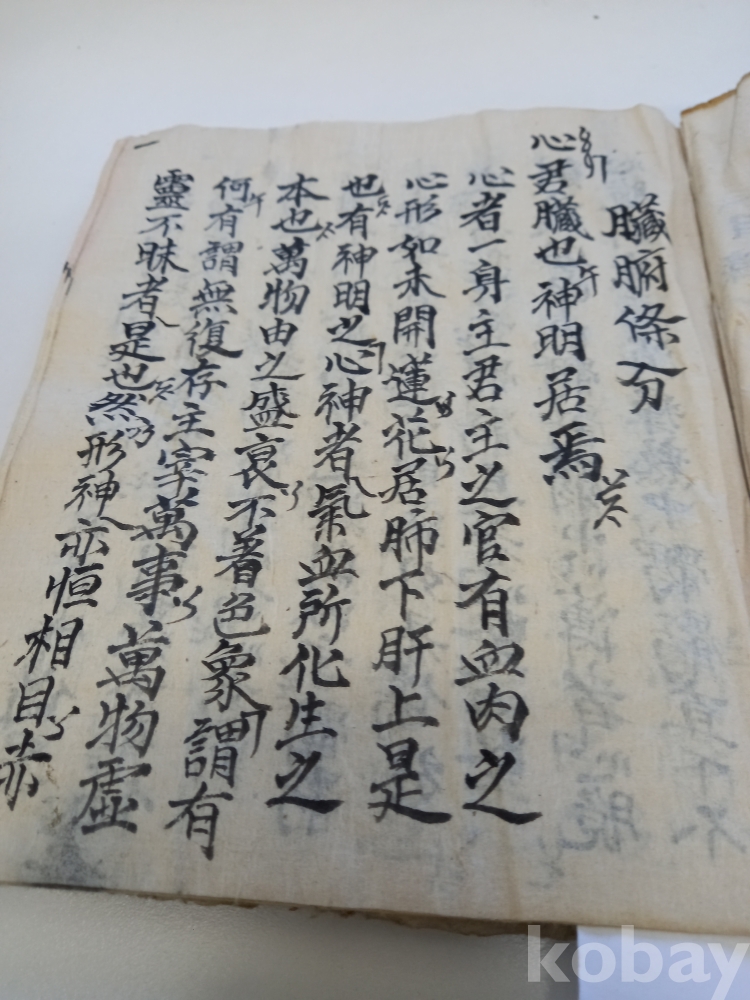 臟腑條分
心君臟也神明居焉
心者一身主君主之官有血肉之
心形如未開蓮花居肺下肝上是
也有神明之心神者氣血所化生之
本也萬物由之盛衰不著色象謂有
何有謂無復存主宰萬事萬物虛
靈不昧者是也然形神亦恒相因
一
kobay